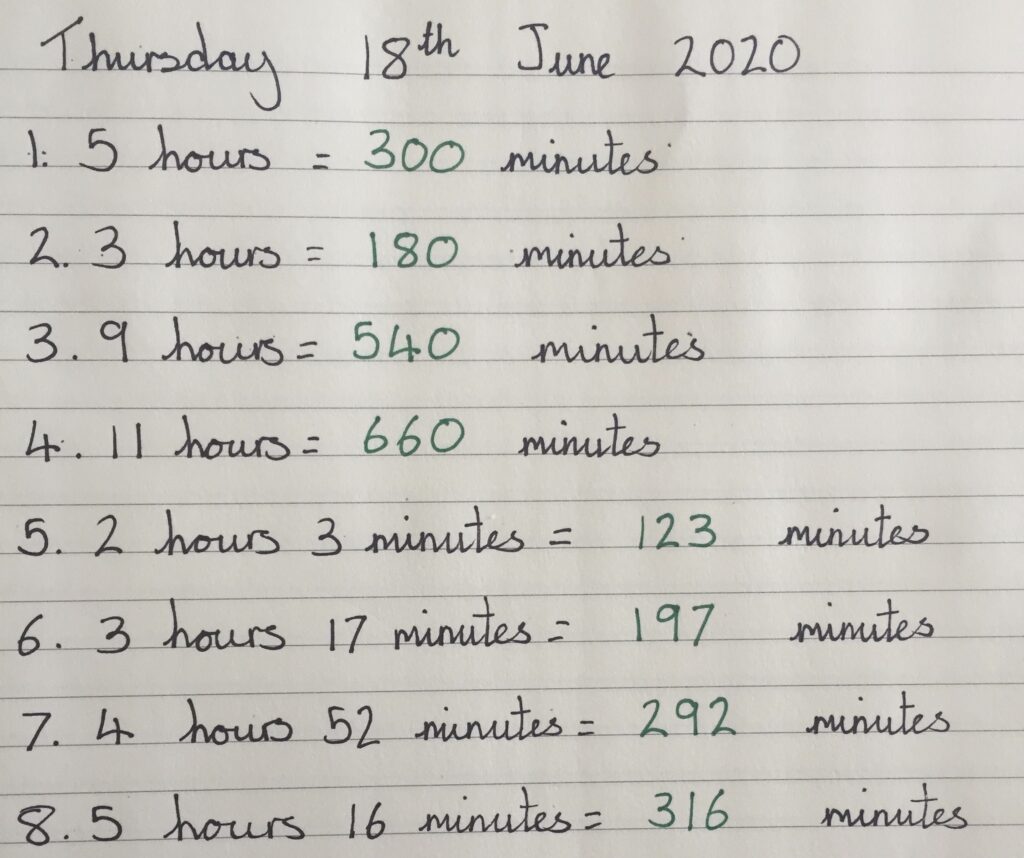 Thursday 18th June 2020
1. 5 hours = 300 minutes
2. 3 hours = 180 minutes
3. 9 hours = 540 minutes
4. 11 hours = 660 minutes
5. 2 hours 3 minutes = 123 minutes
6. 3 hours 17 minutes = 197 minutes
7. 4 hours 52 minutes = 292 minutes
8. 5 hours 16 minutes = 316 minutes